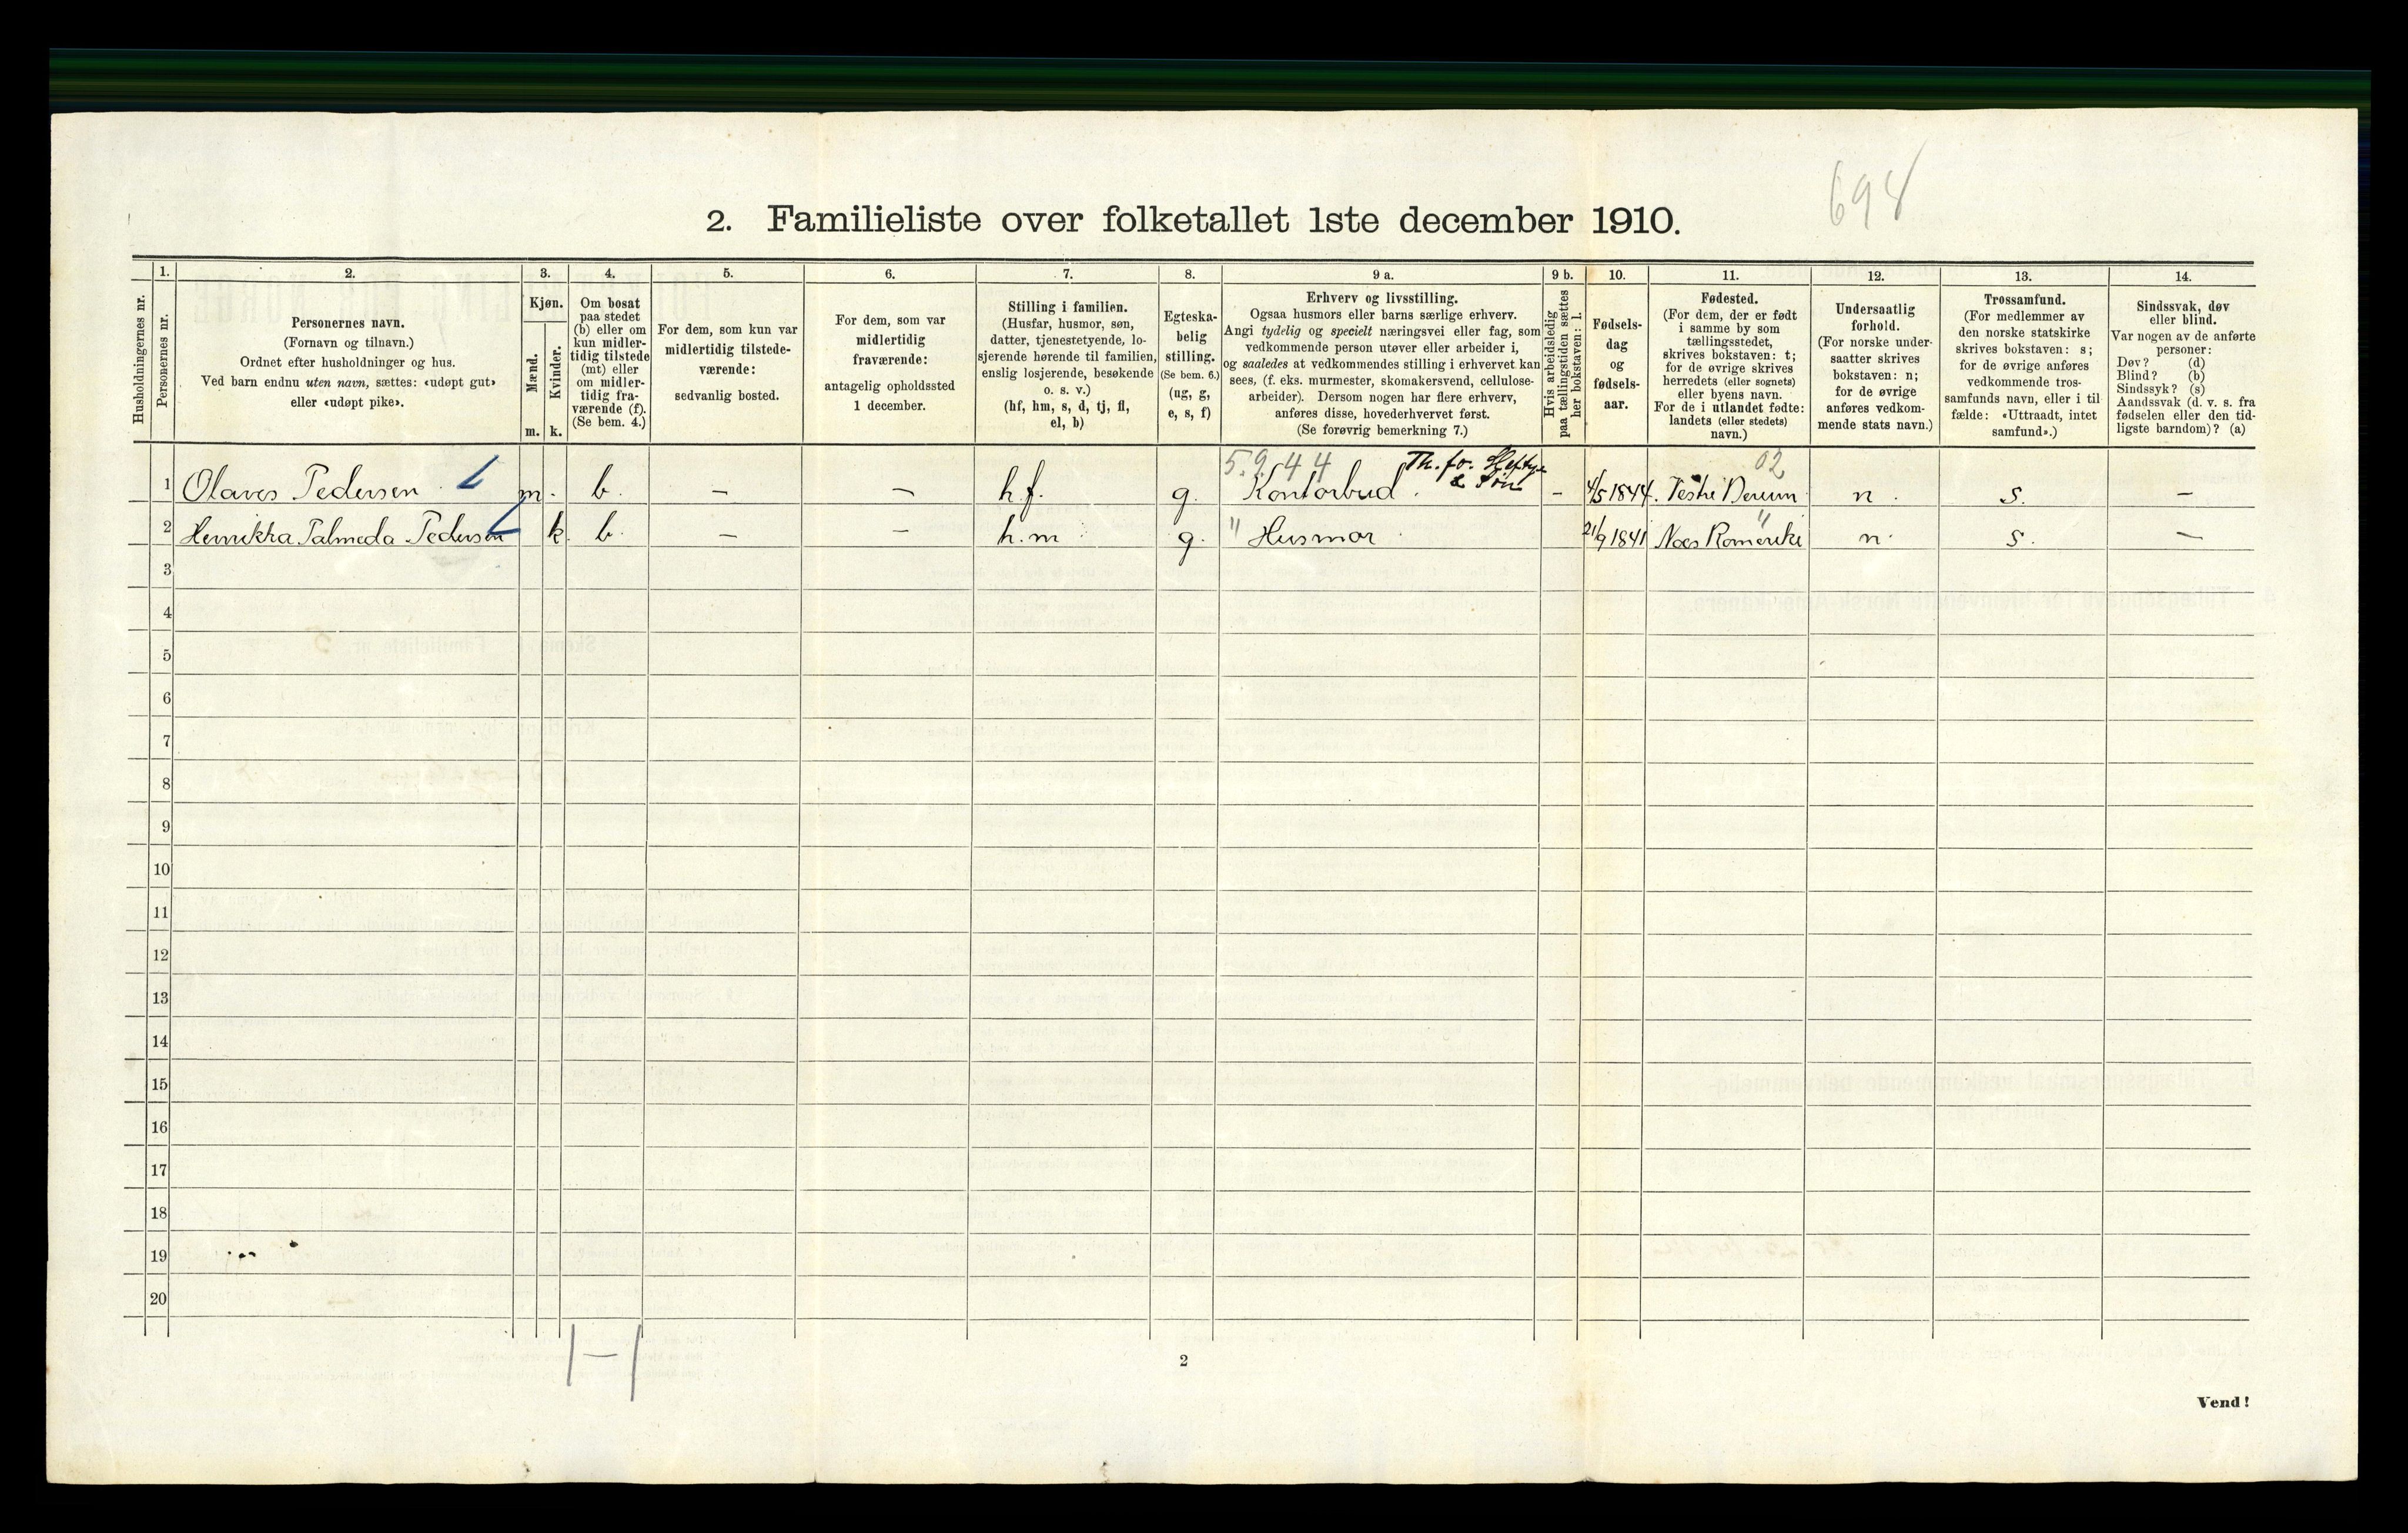 694
2. Familieliste over folketallet 1ste december 1910.
Husholdningernes nr.
1.
Personernes nr.
2.
Personernes navn.
(Fornavn og tilnavn.)
Ordnet efter husholdninger og hus.
Ved barn endnu uten navn, sættes: «udøpt gut»
eller «udøpt pike».
3.
Kjøn.
Mænd.
Kvinder.
m. k.
4.
Om bosat
paa stedet
(b) eller om
kun midler-
tidig tilstede
(mt) eller
om midler-
tidig fra-
værende (f).
(Se bem. 4.)
5.
For dem, som kun var
midlertidig tilstede-
værende:
sedvanlig bosted.
6.
For dem, som var
midlertidig
fraværende:
antagelig opholdssted
1 december.
7.
Stilling i familien.
(Husfar, husmor, søn,
datter, tjenestetyende, lo-
sjerende hørende til familien,
enslig losjerende, besøkende
o. s. v.)
(hf, hm, s, d, tj, fl,
el, b)
8.
Egteska-
belig
stilling.
(Se bem. 6.)
(ug, g,
e, s, f)
9 a.
Erhverv og livsstilling.
Ogsaa husmors eller barns særlige erhverv.
Angi tydelig og specielt næringsvei eller fag, som
vedkommende person utøver eller arbeider i,
og saaledes at vedkommendes stilling i erhvervet kan
sees, (f. eks. murmester, skomakersvend, cellulose-
arbeider). Dersom nogen har flere erhverv,
anføres disse, hovederhvervet først.
(Se forøvrig bemerkning 7.)
9 b.
Hvis arbeidsledig
paa tællingstiden sættes
her bokstaven: l.
10.
Fødsels-
dag
og
fødsels-
aar.
11.
Fødested.
(For dem, der er født
i samme by som
tællingsstedet,
skrives bokstaven: t;
for de øvrige skrives
herredets (eller sognets)
eller byens navn.
For de i utlandet fødte:
landets (eller stedets)
navn.)
12.
Undersaatlig
forhold.
(For norske under-
saatter skrives
bokstaven: n;
for de øvrige
anføres vedkom-
mende stats navn.)
13.
Trossamfund.
(For medlemmer av
den norske statskirke
skrives bokstaven: s;
for de øvrige anføres
vedkommende tros-
samfunds navn, eller i til-
fælde: «Uttraadt, intet
samfund».)
14.
Sindssvak, døv
eller blind.
Var nogen av de anførte
personer:
Døv? (d)
Blind? (b)
Sindssyk? (s)
Aandssvak (d. v. s. fra
fødselen eller den tid-
ligste barndom)? (a)
5.9.44 Th. fo. Heftye 02
& Søn
1 Olaves Pedersen m. b. — — h.f. g. Kontorbud. – 4/5 1844. Vestre Berum n. s. —
2 Henrikka Palmeda Pedersen k. b. — — h.m g. " Husmor 21/9 1841 Næs Romerike " n. s. —
3
4
5
6
7
8
9
10
11
12
13
14
15
16
17
18
19
20
1–1
2
Vend!